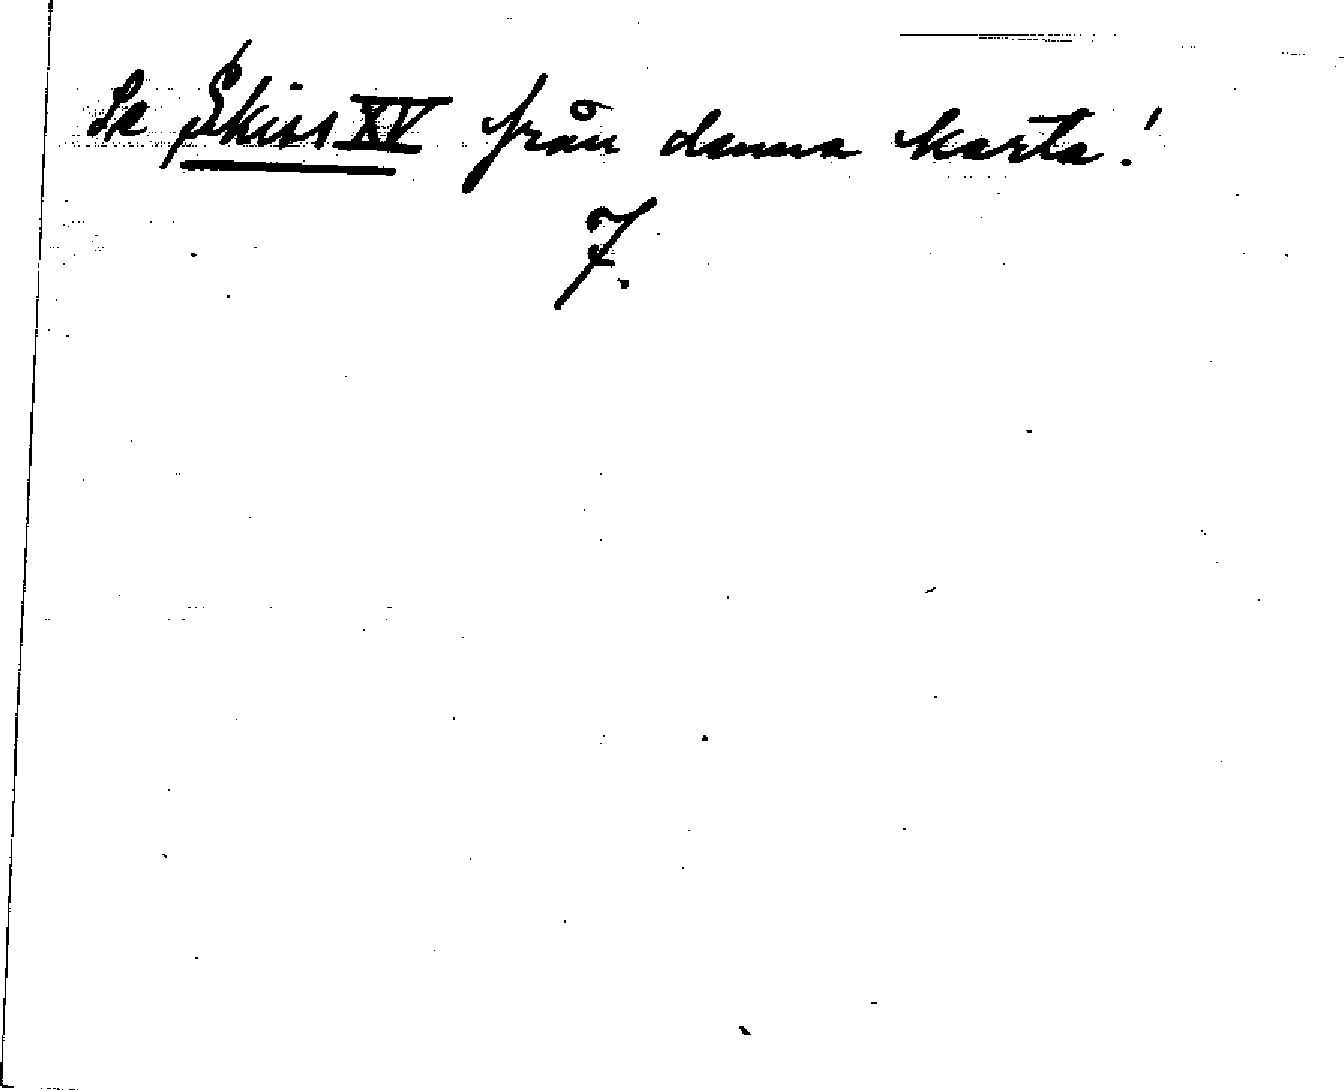 Se Skiss XV från denna karta!
7.